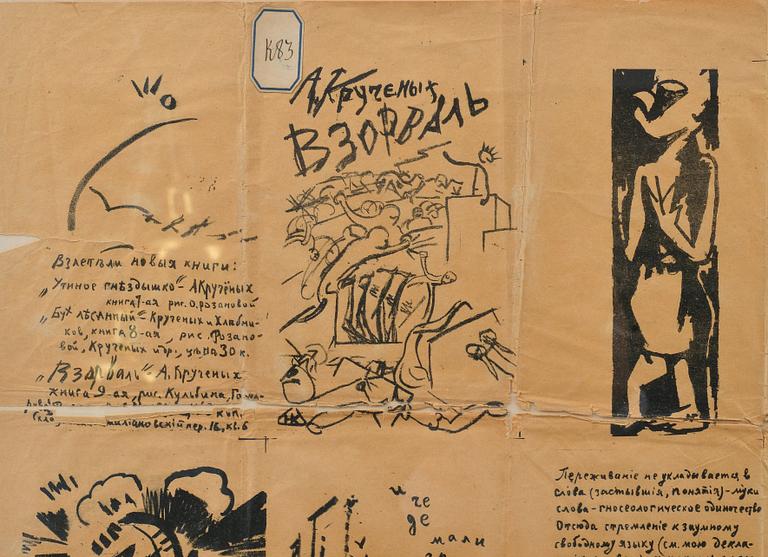 К83
А. Крученых
ВЗОРВАЛЬ
Взлетѣли новыя книги:
„Утиное гнѣздышко" А Кручёных
книга 7-ая рис. О. Розановой
„Бух лѣсинный" - Крученых и Хлебни-
ков, книга 8-ая, рис. Розано-
вой, Крученых и др., цѣна 30 к.
„Взорваль" - А. Крученых
книга 9-ая, рис. Кульбина,
коп.
пер. 16, кв. 6
и че
де
мали
Переживаніе не укладывается в
слова (застывшія, понятія) - муки
слова - гносеологическое одиночество
Отсюда стремление к заумному
свободному языку (см. мою декла-